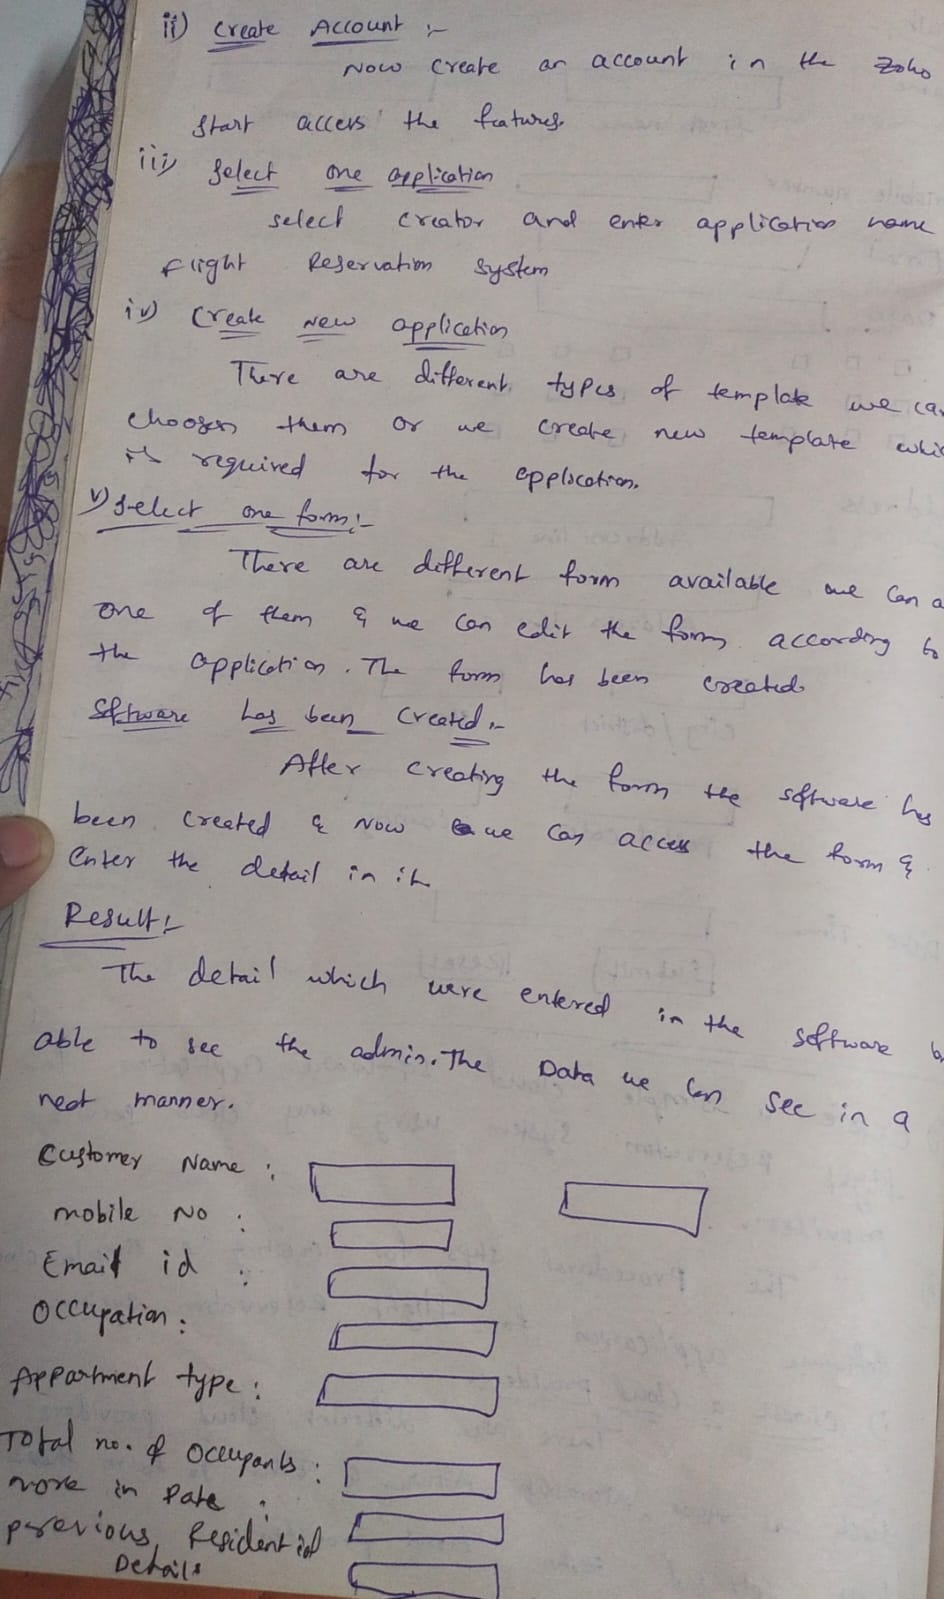 ii) Create Account :-
Now Create an account in the Zoho
start access the features.
iii) select one application
select creator and enter application name
Flight Reservation system
iv) Create New application
There are different types of template we can
choosen them or we create new template which
is required for the application.
v) select one form:-
There are different form available we can
one of them & we can edit the form according to
the application. The form has been created.
Software has been Created:-
After creating the form the software has
been created & Now we can access the form &
Enter the detail in it
Result:-
The detail which were entered in the software
able to see the admin. The Data we can see in a
neat manner.
Customer Name :
mobile No :
Email id :
Occupation :
Appartment type :
Total no. of occupants :
move in Date :
previous Residential
Details